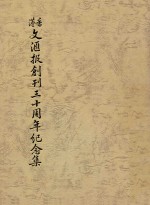 香港
文滙报創刊三十周年纪念集